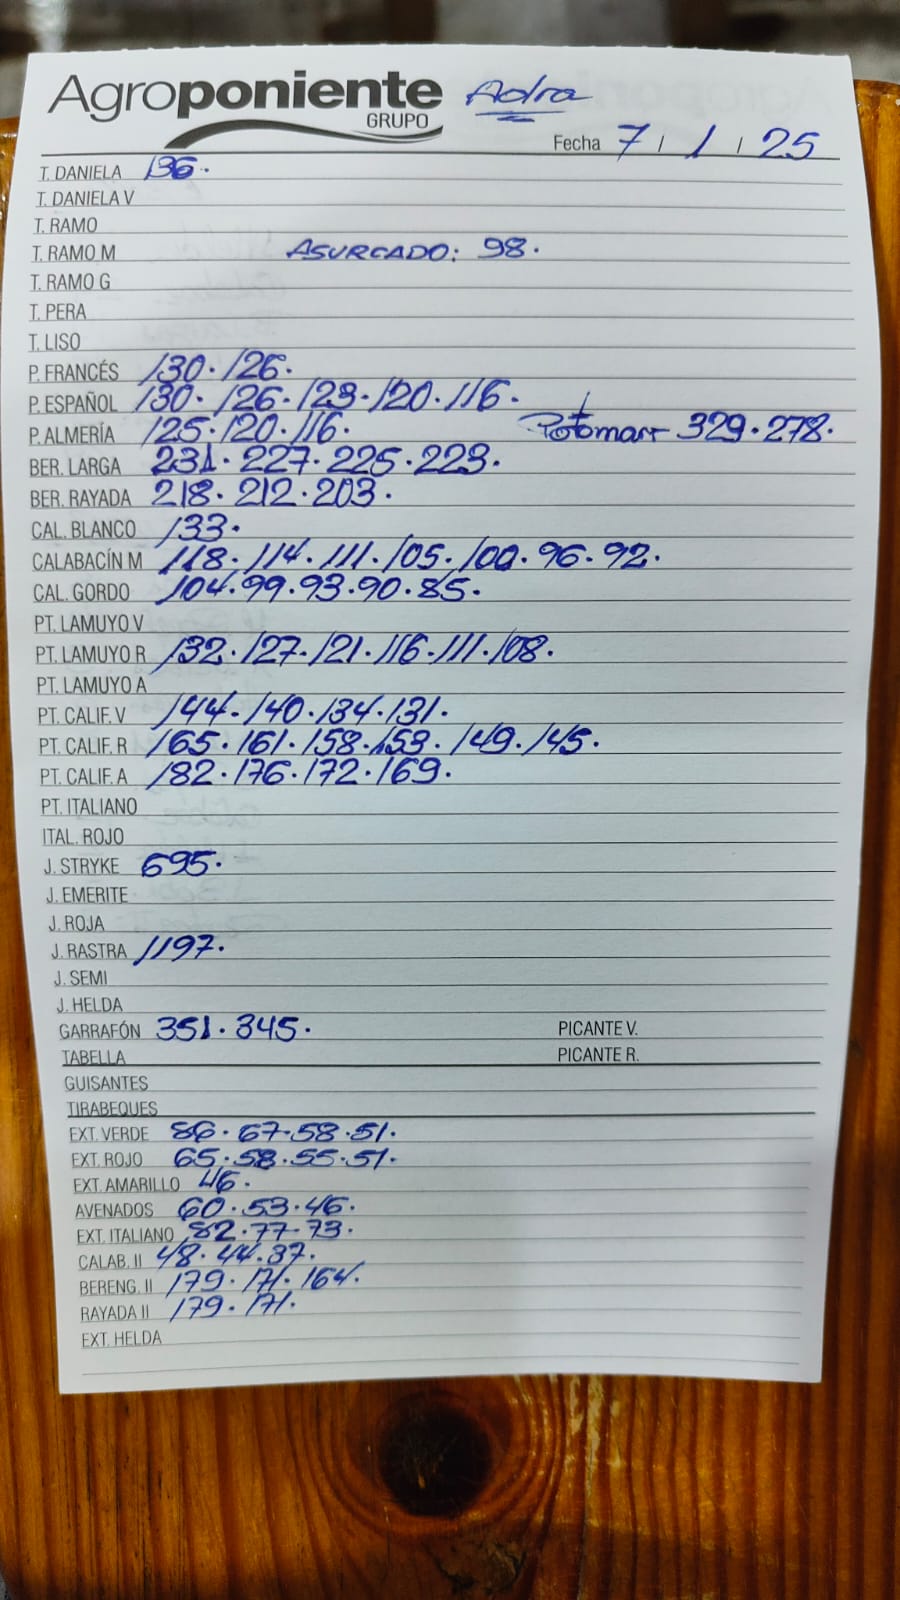 Agroponiente Adra
GRUPO
Fecha 7 / 1 / 25
T. DANIELA 136.
T. DANIELA V
T. RAMO
T. RAMO M ASURCADO: 98.
T. RAMO G
T. PERA
T. LISO
P. FRANCÉS 130. 126.
P. ESPAÑOL 130. 126. 123. 120. 116.
P. ALMERÍA 125. 120. 116. 329. 278.
BER. LARGA 231. 227. 225. 223.
BER. RAYADA 218. 212. 203.
CAL. BLANCO 133.
CALABACÍN M 118. 114. 111. 105. 100. 96. 92.
CAL. GORDO 104. 99. 93. 90. 85.
PT. LAMUYO V
PT. LAMUYO R 132. 127. 121. 116. 111. 108.
PT. LAMUYO A
PT. CALIF. V 144. 140. 134. 131.
PT. CALIF. R 165. 161. 158. 153. 149. 145.
PT. CALIF. A 182. 176. 172. 169.
PT. ITALIANO
ITAL. ROJO
J. STRYKE 695.
J. EMERITE
J. ROJA
J. RASTRA 1197.
J. SEMI
J. HELDA
GARRAFÓN 351. 345. PICANTE V.
TABELLA PICANTE R.
GUISANTES
TIRABEQUES
EXT. VERDE 86. 67. 58. 51.
EXT. ROJO 65. 58. 55. 51.
EXT. AMARILLO 46.
AVENADOS 60. 53. 46.
EXT. ITALIANO 82. 77. 73.
CALAB. II 48. 44. 37.
BERENG. II 179. 171. 164.
RAYADA II 179. 171.
EXT. HELDA